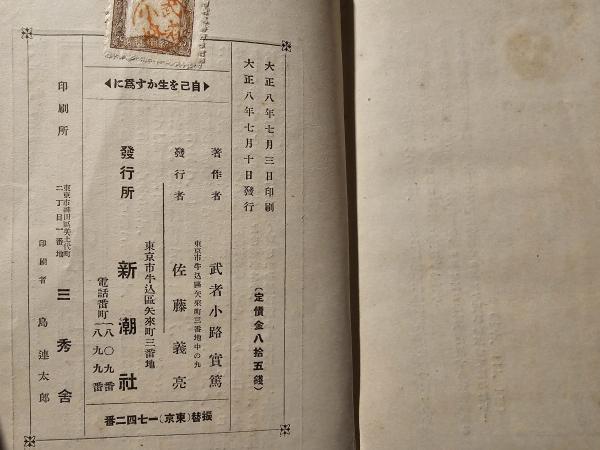 大正八年七月三日印刷
大正八年七月十日發行
(定價金八拾五錢)
自己を生かす爲に
著作者 武者小路實篤
東京市牛込區矢來町三番地中の九
發行者 佐藤義亮
東京市牛込區矢來町三番地
發行所 新潮社
電話番町
一八〇九番
一八九九番
振替(東京)一七四二番
東京市神田區美土代町
二丁目一番地
印刷者 島連太郎
印刷所 三秀舍